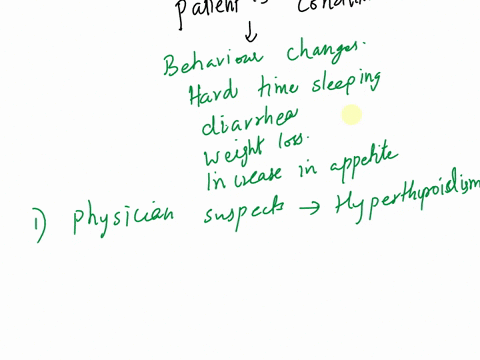 Patient
Behaviour changes.
Hard time sleeping
diarrhea
weight loss.
Increase in appetite
1) Physician suspects → Hyperthyroidism